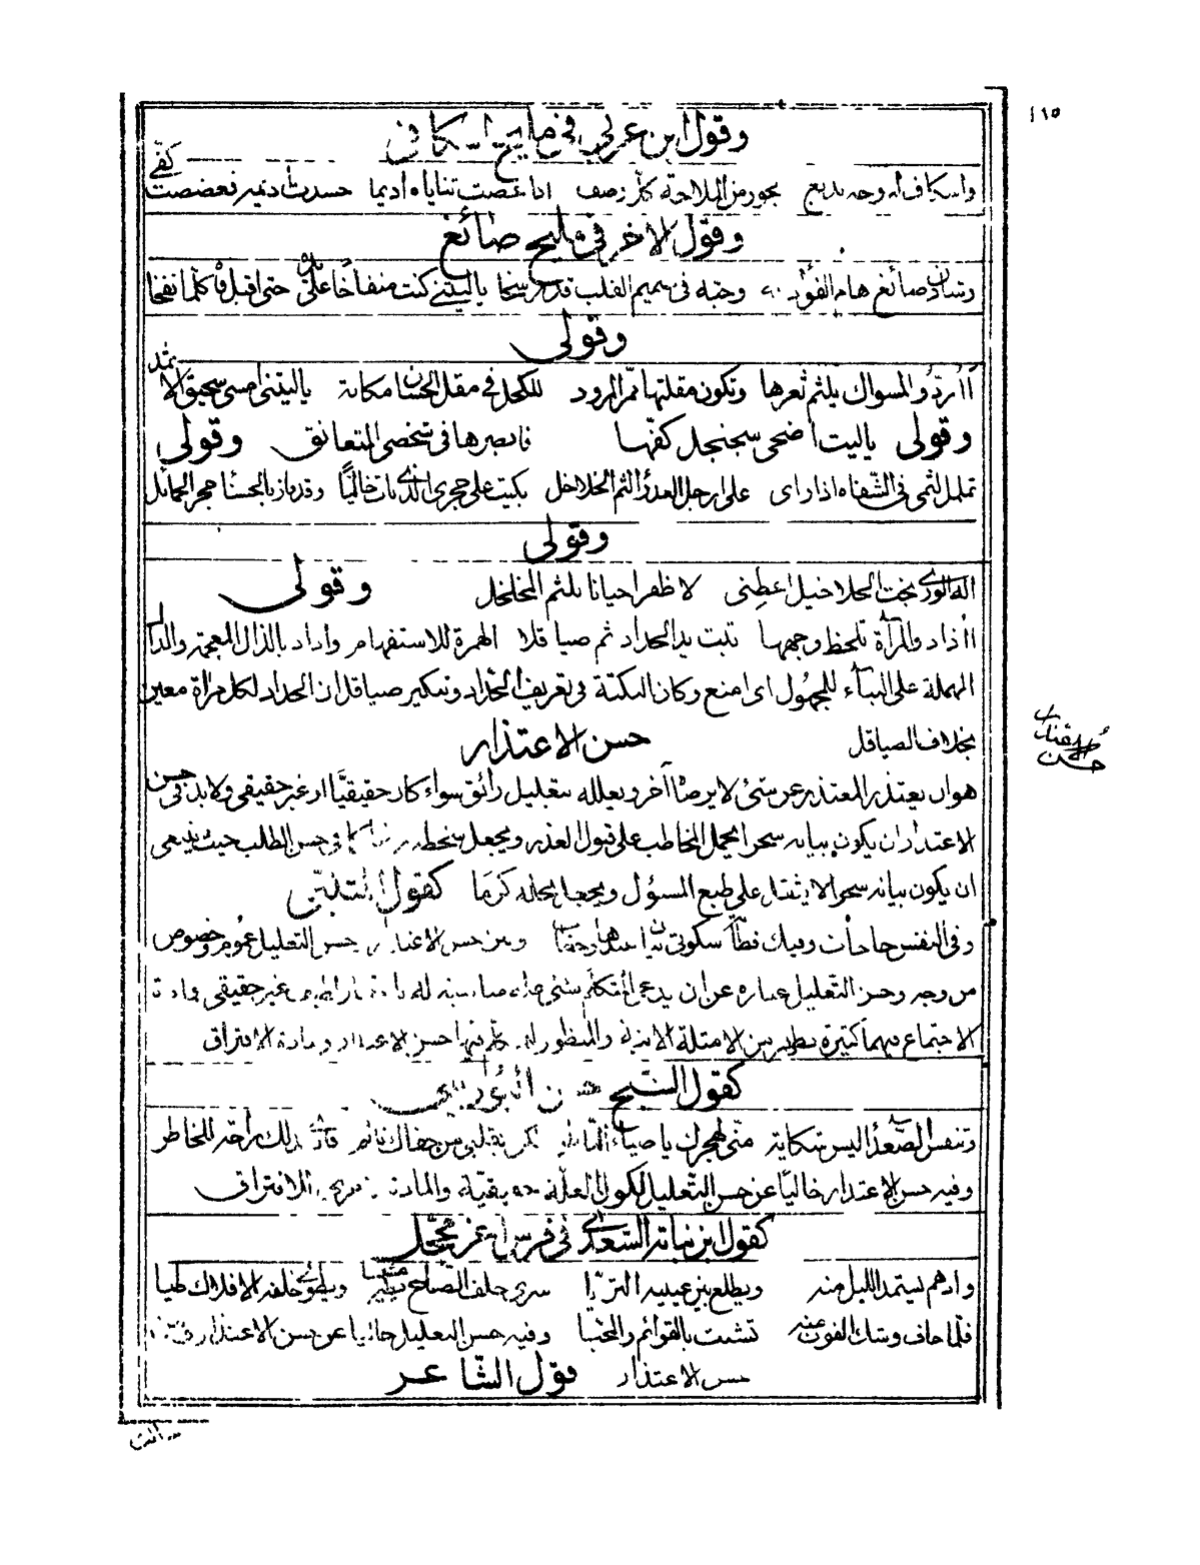 ١١٥
وقول ابن عربي في مليح اسكافي
واسكاف له وجه بديع يجوز من الملاحة كل وصف اذا عضت ثناياه اديما حسدت اديمه فعضضت كفي
وقول الاخر في مليح صائغ
وشادن صائغ هام الفؤاد به وحبه في صميم القلب قد رسخا ياليتني كنت منفاخا على يده حتى اقبل فاه كلما نفخا
وقولي
أأرد والمسواك يلثم ثغرها وتكون مقلتها ممر المرود للكحل في مقل الحسان مكانة ياليتني امسى سحيق الاثمد
وقولي ياليت اضحى سجنجل كفها فابصرها في شخصي المتعانق وقولي
تململ لثمي في الشفاه اذا راى على ارجل العذراء لثم الخلاخل بكيت على حجري الذي بات خاليا وقد فاز بالحسنا حجر الحمائل
وقولي
اله الورى بخت الخلاخيل اعطني لاظفر احيانا بلثم المخلخل وقولي
أأذاد والمرآة تلحظ وجهها تبت يد الحداد ثم صياقلا الهمزة للاستفهام واذاد بالذال المعجمة والدال
المهملة على البناء للمجهول اى امنع وكان النكتة في تعريف الحداد وتنكير صياقل ان الحداد لكل مرآة معين
بخلاف الصياقل حسن الاعتذار
حسن الاعتذار
هو ان يعتذر المعتذر عن شئ لا يرضاه آخر ويعلله بتعليل رائق سواء كان حقيقيا او غير حقيقي ولابد في حسن
الاعتذار ان يكون بيانه سحرا يحمل المخاطب على قبول العذر ويجعل سخطه رضا كما في حسن الطلب حيث ينبغي
ان يكون بيانه سحرا لا يثقل على طبع المسؤل ويجعل بخله كرما كقول المتنبي
وفي النفس حاجات وفيك فطانة سكوتي بيان عندها وخطاب وبين حسن الاعتذار وحسن التعليل عموم وخصوص
من وجه وحسن التعليل عبارة عن ان يدعي المتكلم لشئ علة مناسبة له باعتبار لطيف غير حقيقي ومادة
الاجتماع فيهما كثيرة يظهر من الامثلة الاتية والمنظور فيها حسن الاعتذار ومادة الافتراق
كقول الشيخ حسن البوريني
وتنفس الصعداء ليس شكاية مني لهجرك يا ضياء الناظر لكن بقلبي من جفاك فأذ ذلك راحة للخاطر
وفيه حسن الاعتذار خاليا عن حسن التعليل لكون العلة حقيقية والمادة الاخرى للافتراق
كقول ابن نباتة السعدي في فرس اغر محجل
وادهم يستمد الليل منه ويطلع بين عينيه الثريا سرى خلف الصباح يطير مشيا ويطوي خلفه الافلاك طيا
فلما خاف وشك الفوت منه تشبث بالقوائم والمحيا وفيه حسن التعليل خاليا عن حسن الاعتذار ومن
حسن الاعتذار قول الشاعر